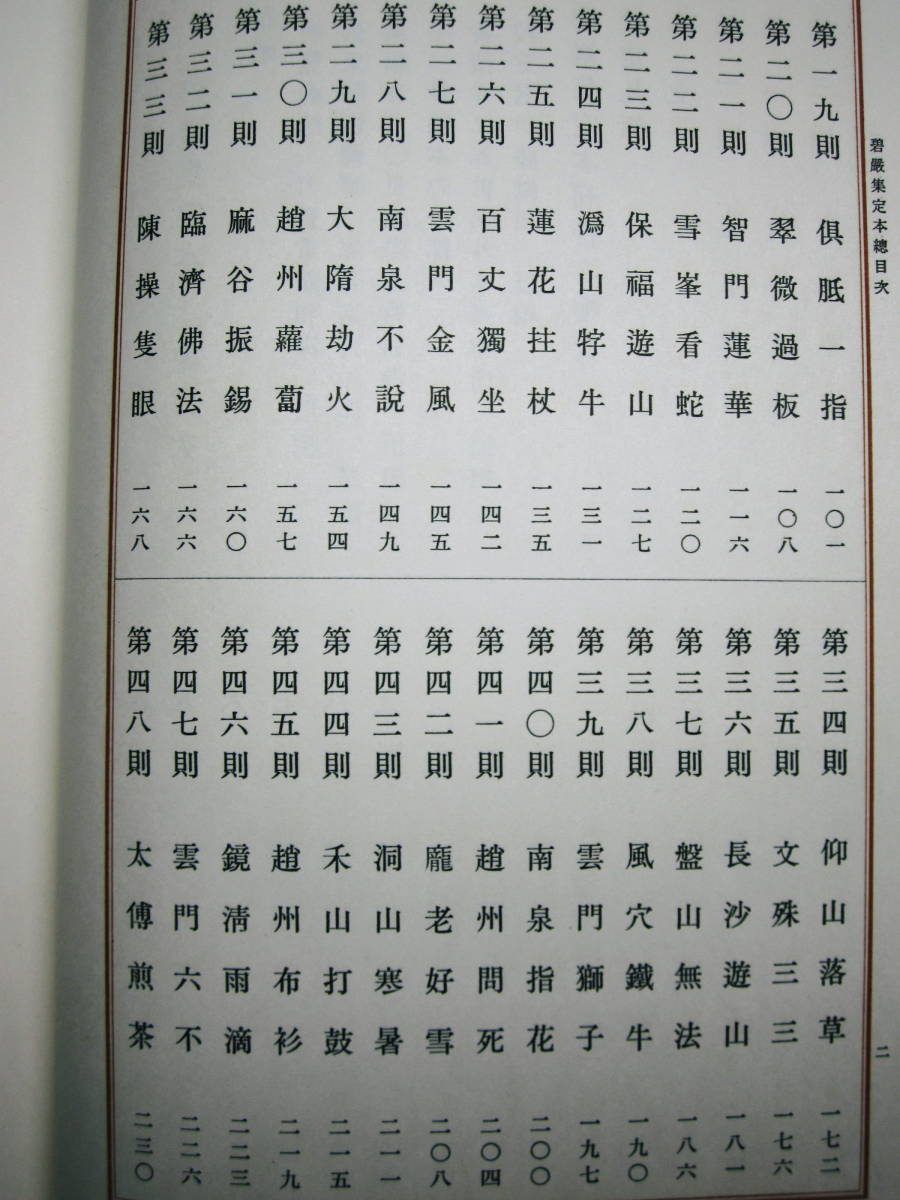 碧嚴集定本總目次
第一九則 俱胝一指 一〇一
第二〇則 翠微過板 一〇八
第二一則 智門蓮華 一一六
第二二則 雪峯看蛇 一二〇
第二三則 保福遊山 一二七
第二四則 潙山牸牛 一三一
第二五則 蓮花拄杖 一三五
第二六則 百丈獨坐 一四二
第二七則 雲門金風 一四五
第二八則 南泉不說 一四九
第二九則 大隋劫火 一五四
第三〇則 趙州蘿蔔 一五七
第三一則 麻谷振錫 一六〇
第三二則 臨濟佛法 一六六
第三三則 陳操隻眼 一六八
第三四則 仰山落草 一七二
第三五則 文殊三三 一七六
第三六則 長沙遊山 一八一
第三七則 盤山無法 一八六
第三八則 風穴鐵牛 一九〇
第三九則 雲門獅子 一九七
第四〇則 南泉指花 二〇〇
第四一則 趙州問死 二〇四
第四二則 龐老好雪 二〇八
第四三則 洞山寒暑 二一一
第四四則 禾山打鼓 二一五
第四五則 趙州布衫 二一九
第四六則 鏡淸雨滴 二二三
第四七則 雲門六不 二二六
第四八則 太傅煎茶 二三〇
二